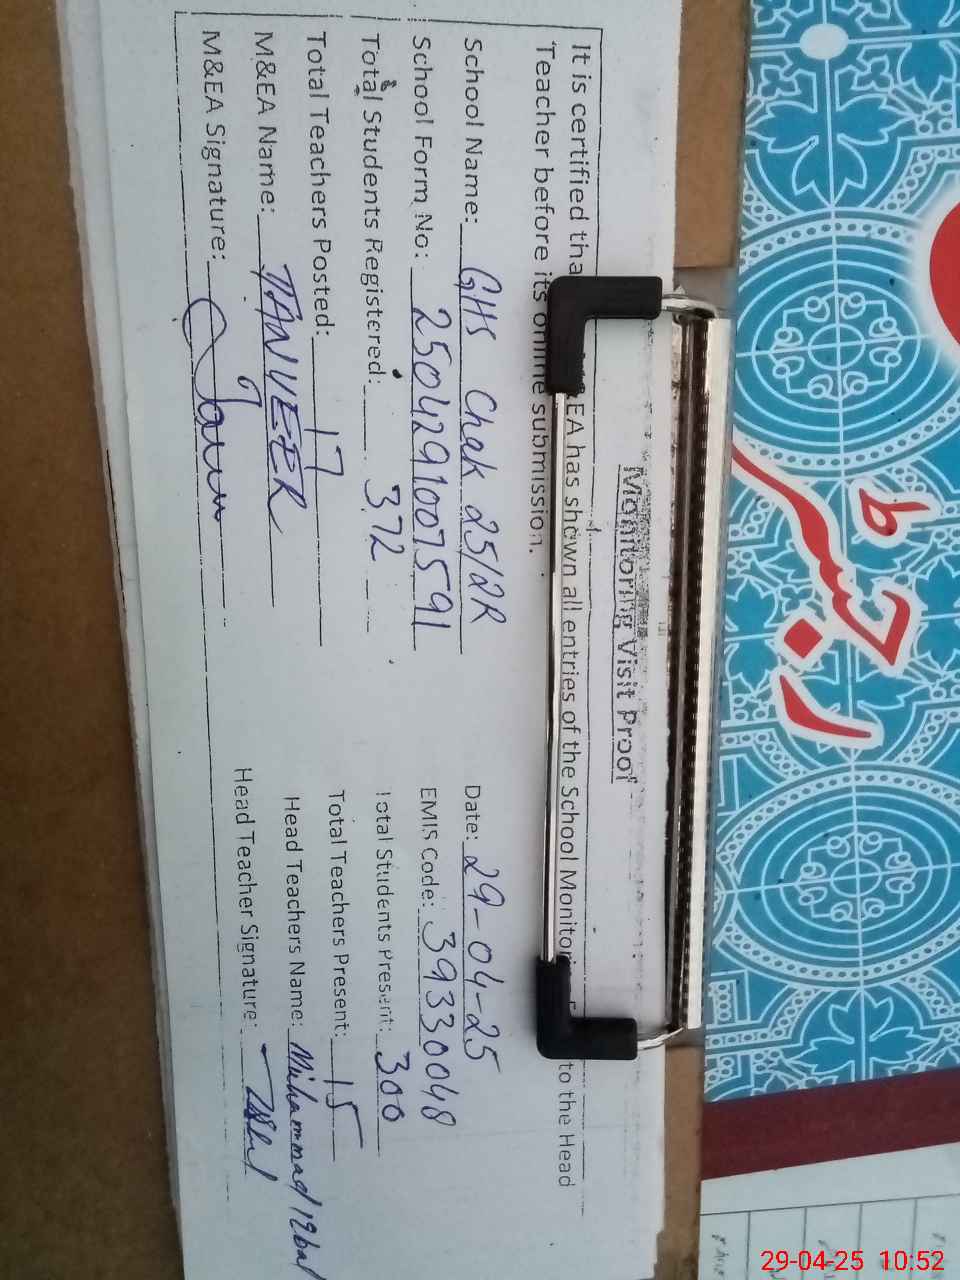 Monitoring Visit Proof
It is certified tha EA has shown all entries of the School Monitori to the Head
Teacher before its online submission.
School Name: GHS Chak 25/2R Date: 29-04-25
School Form No: 25042910075591 EMIS Code: 39330048
Total Students Registered: 372 Total Students Present: 300
Total Teachers Posted: 17 Total Teachers Present: 15
M&EA Name: TANVEER Head Teachers Name: Muhammad Iqbal
M&EA Signature: Head Teacher Signature:
رجسٹر
29-04-25 10:52